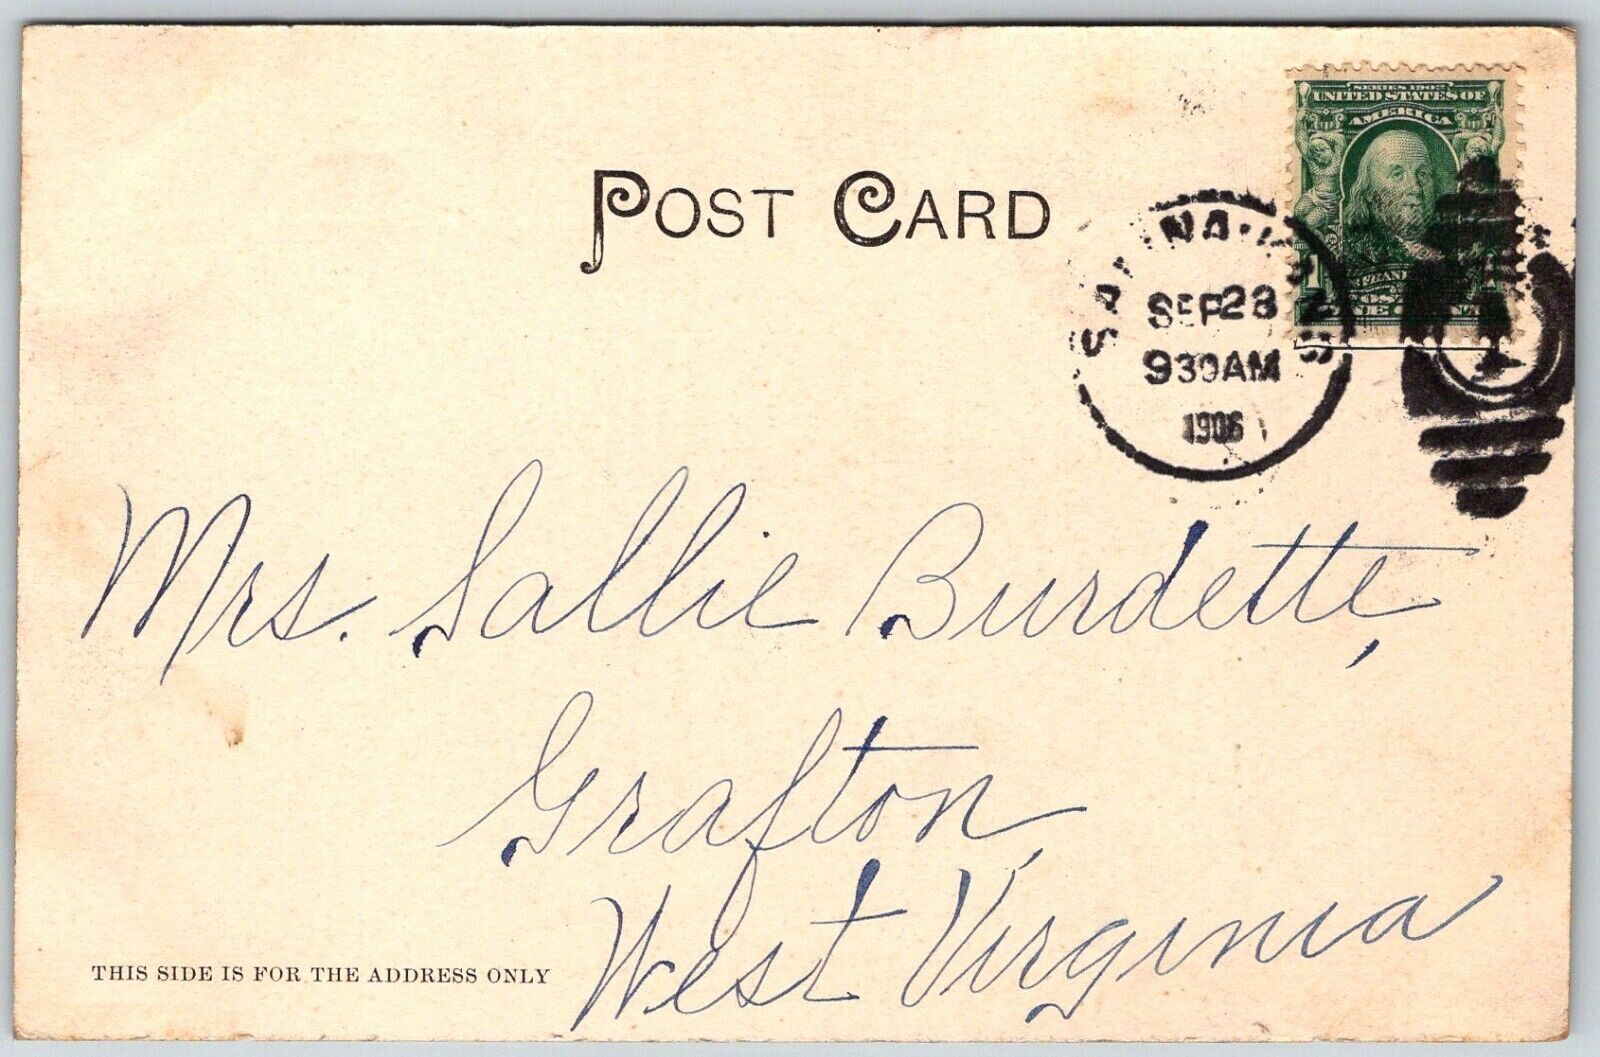 POST CARD
SERIES 1902
UNITED STATES OF
AMERICA
SALINA
SEP 28
930AM
1906
1
Mrs. Sallie Burdette,
Grafton,
West Virginia
THIS SIDE IS FOR THE ADDRESS ONLY